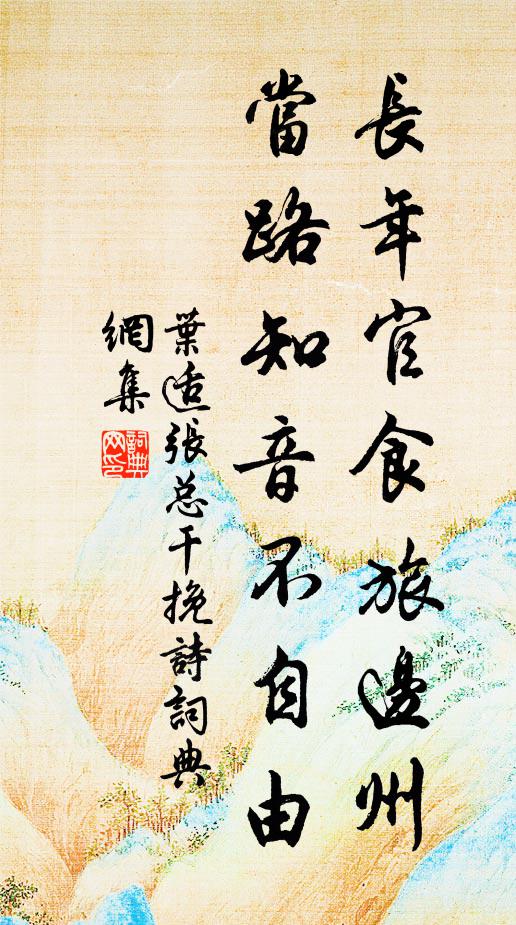 長年官食旅邊州
當路知音不自由
葉适張总干挽詩詞典
網集
詞典
网印